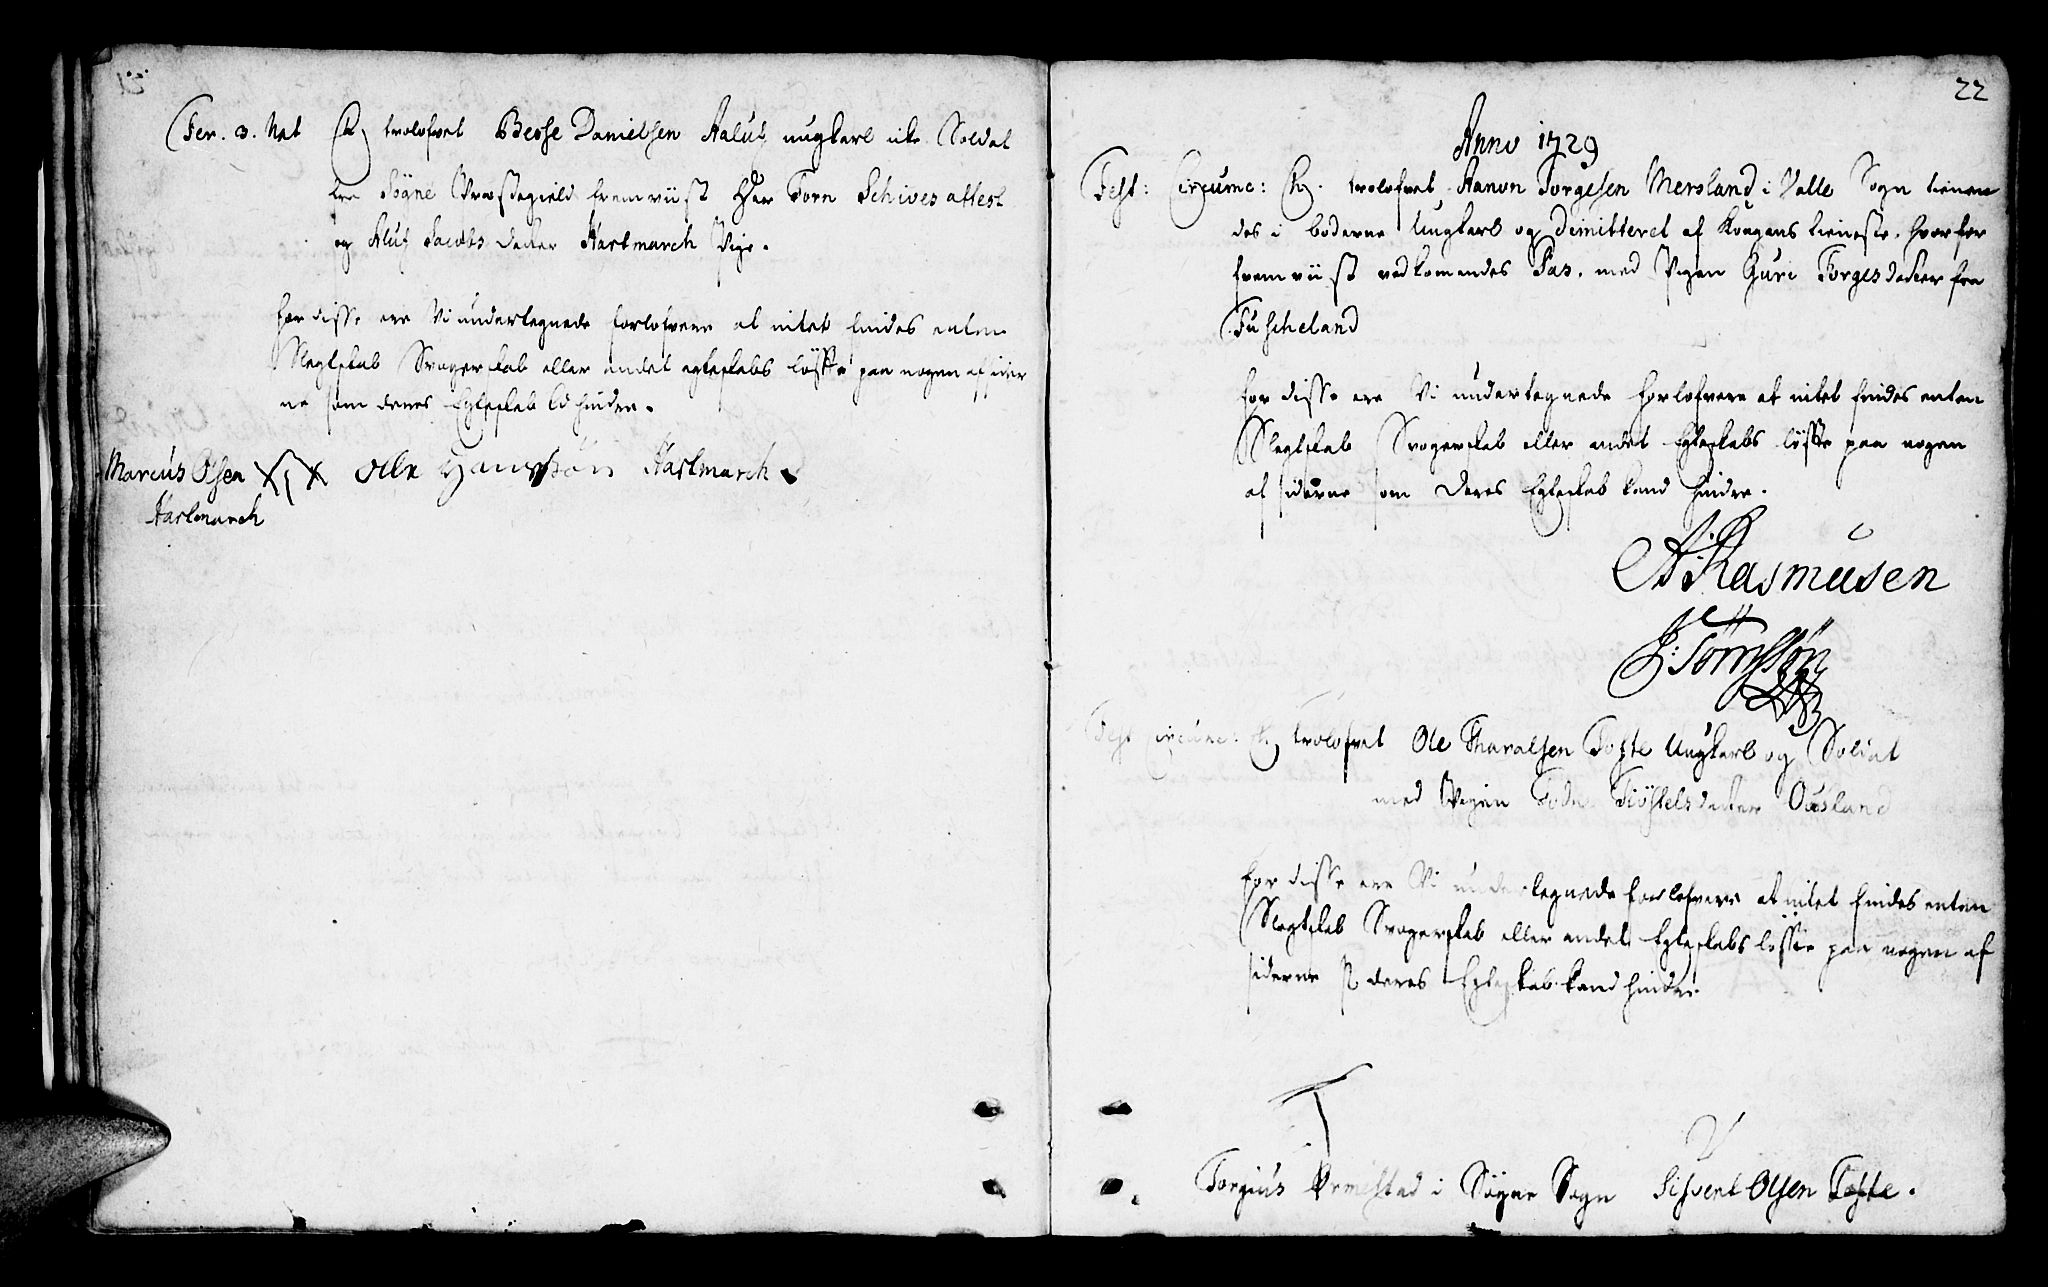 Fer. 3. Nat trolofvet Berse Danielsen Aaluf ungkarl ike Soldat
fra Søgne Præstegield fremviist Her Jorn Schives attest
og Aluf Jacobs datter Hartmarch Pige.
for disse ere Vi undertegnede forlofvere at intet findes enten
Slegtskab Svogerskab eller andet egteskabs løffte paa nogen af sider
ne som deres Egteskab kd hindre.
Marcus Olsen Olle Hansøn Hartmarch
Hartmarch
22
Anno 1729
Fest: Circumc: trolofvet Aanon Torgesen Mersland i Valle Sogn tienen
des i boderne Ungkarl og Dimitteret af Kongens tieneste. hvorfor
fremviist vedkomendes Pas. med Pigen Guri Torgesdatter fra
Fuscheland
for disse ere Vi undertegnede forlofvere at intet findes enten
Slegtskab Svogerskab eller andet Egteskabs løffte paa nogen
af siderne som deres Egteskab kand hindre.
A: Rasmusen
J: Tørrissøn
Fest Circumc: trolofvet Ole Tharalsen Tofte Ungkarl og Soldat
med Pigen Tode Kiøstelsdatter Ousland
for disse ere Vi undertegnede forlofvere at intet findes enten
Slegtskab Svogerskab eller andet Egteskabs løffte paa nogen af
siderne som deres Egteskab kand hindre.
Torgius Ormestad i Søgne Sogn Sifvert Olsen Tofte.